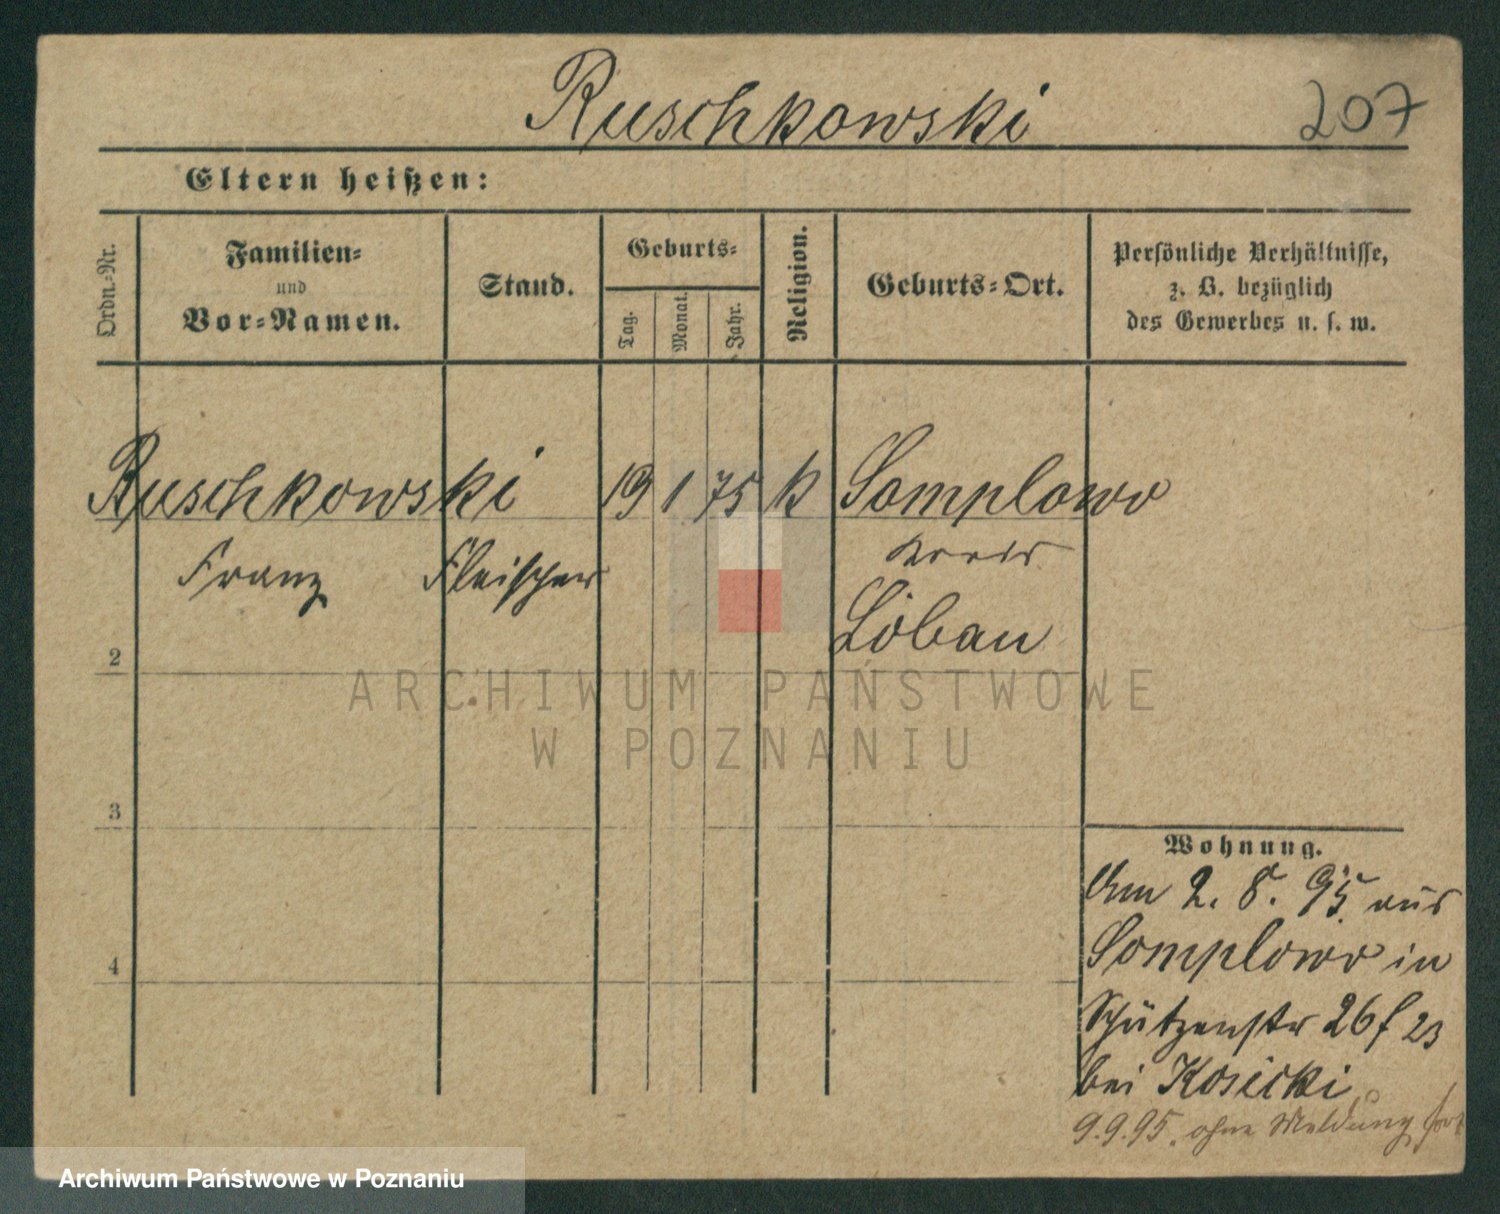 Ruschkowski
207
Eltern heißen:
Ordn.-Nr.
Familien-
und
Vor-Namen.
Stand.
Geburts-
Tag.
Monat.
Jahr.
Religion.
Geburts-Ort.
Persönliche Verhältnisse,
z. B. bezüglich
des Gewerbes u. s. w.
Ruschkowski 19 1 75 k Somplowo
Franz Fleischer Kreis
Löbau
2
3
4
Wohnung.
Am 2. 8. 95. aus
Somplowo in
Schützenstr 26 f 23
bei Kosicki
9.9.95. ohne Meldung fort
ARCHIWUM PAŃSTWOWE
W POZNANIU
Archiwum Państwowe w Poznaniu